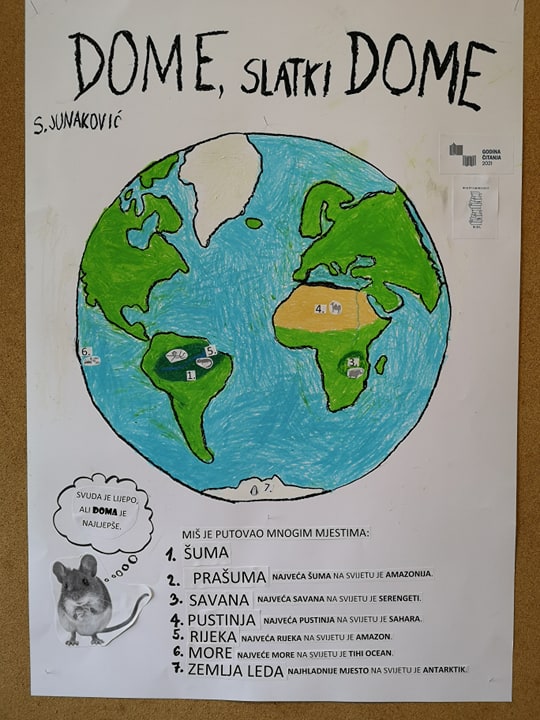 DOME, SLATKI DOME
S. JUNAKOVIĆ
GODINA
ČITANJA
2021
4.
6.
5.
3.
1.
7.
SVUDA JE LIJEPO,
ALI DOMA JE
NAJLJEPŠE.
MIŠ JE PUTOVAO MNOGIM MJESTIMA:
1. ŠUMA
2. PRAŠUMA NAJVEĆA ŠUMA NA SVIJETU JE AMAZONIJA.
3. SAVANA NAJVEĆA SAVANA NA SVIJETU JE SERENGETI.
4. PUSTINJA NAJVEĆA PUSTINJA NA SVIJETU JE SAHARA.
5. RIJEKA NAJVEĆA RIJEKA NA SVIJETU JE AMAZON.
6. MORE NAJVEĆE MORE NA SVIJETU JE TIHI OCEAN.
7. ZEMLJA LEDA NAJHLADNIJE MJESTO NA SVIJETU JE ANTARKTIK.